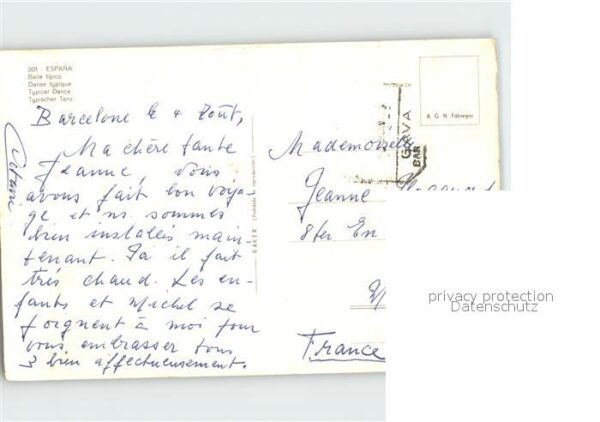 301 - ESPAÑA
Baile típico
Danse typique
Typical Dance
Typischer Tanz
Barcelone le 4 Août,
Ma chère tante
Jeanne, Nous
avons fait bon voya-
ge et ns sommes
bien installés main-
tenant. Ia il fait
trés chaud. Les en-
fants et Michel se
joignent à moi pour
vous embrasser tous
3 bien affectueusement.
A. G. N. Fábregas
GAVA
BAR
Mademoiselle
Jeanne
8ter En
France
privacy protection
Datenschutz